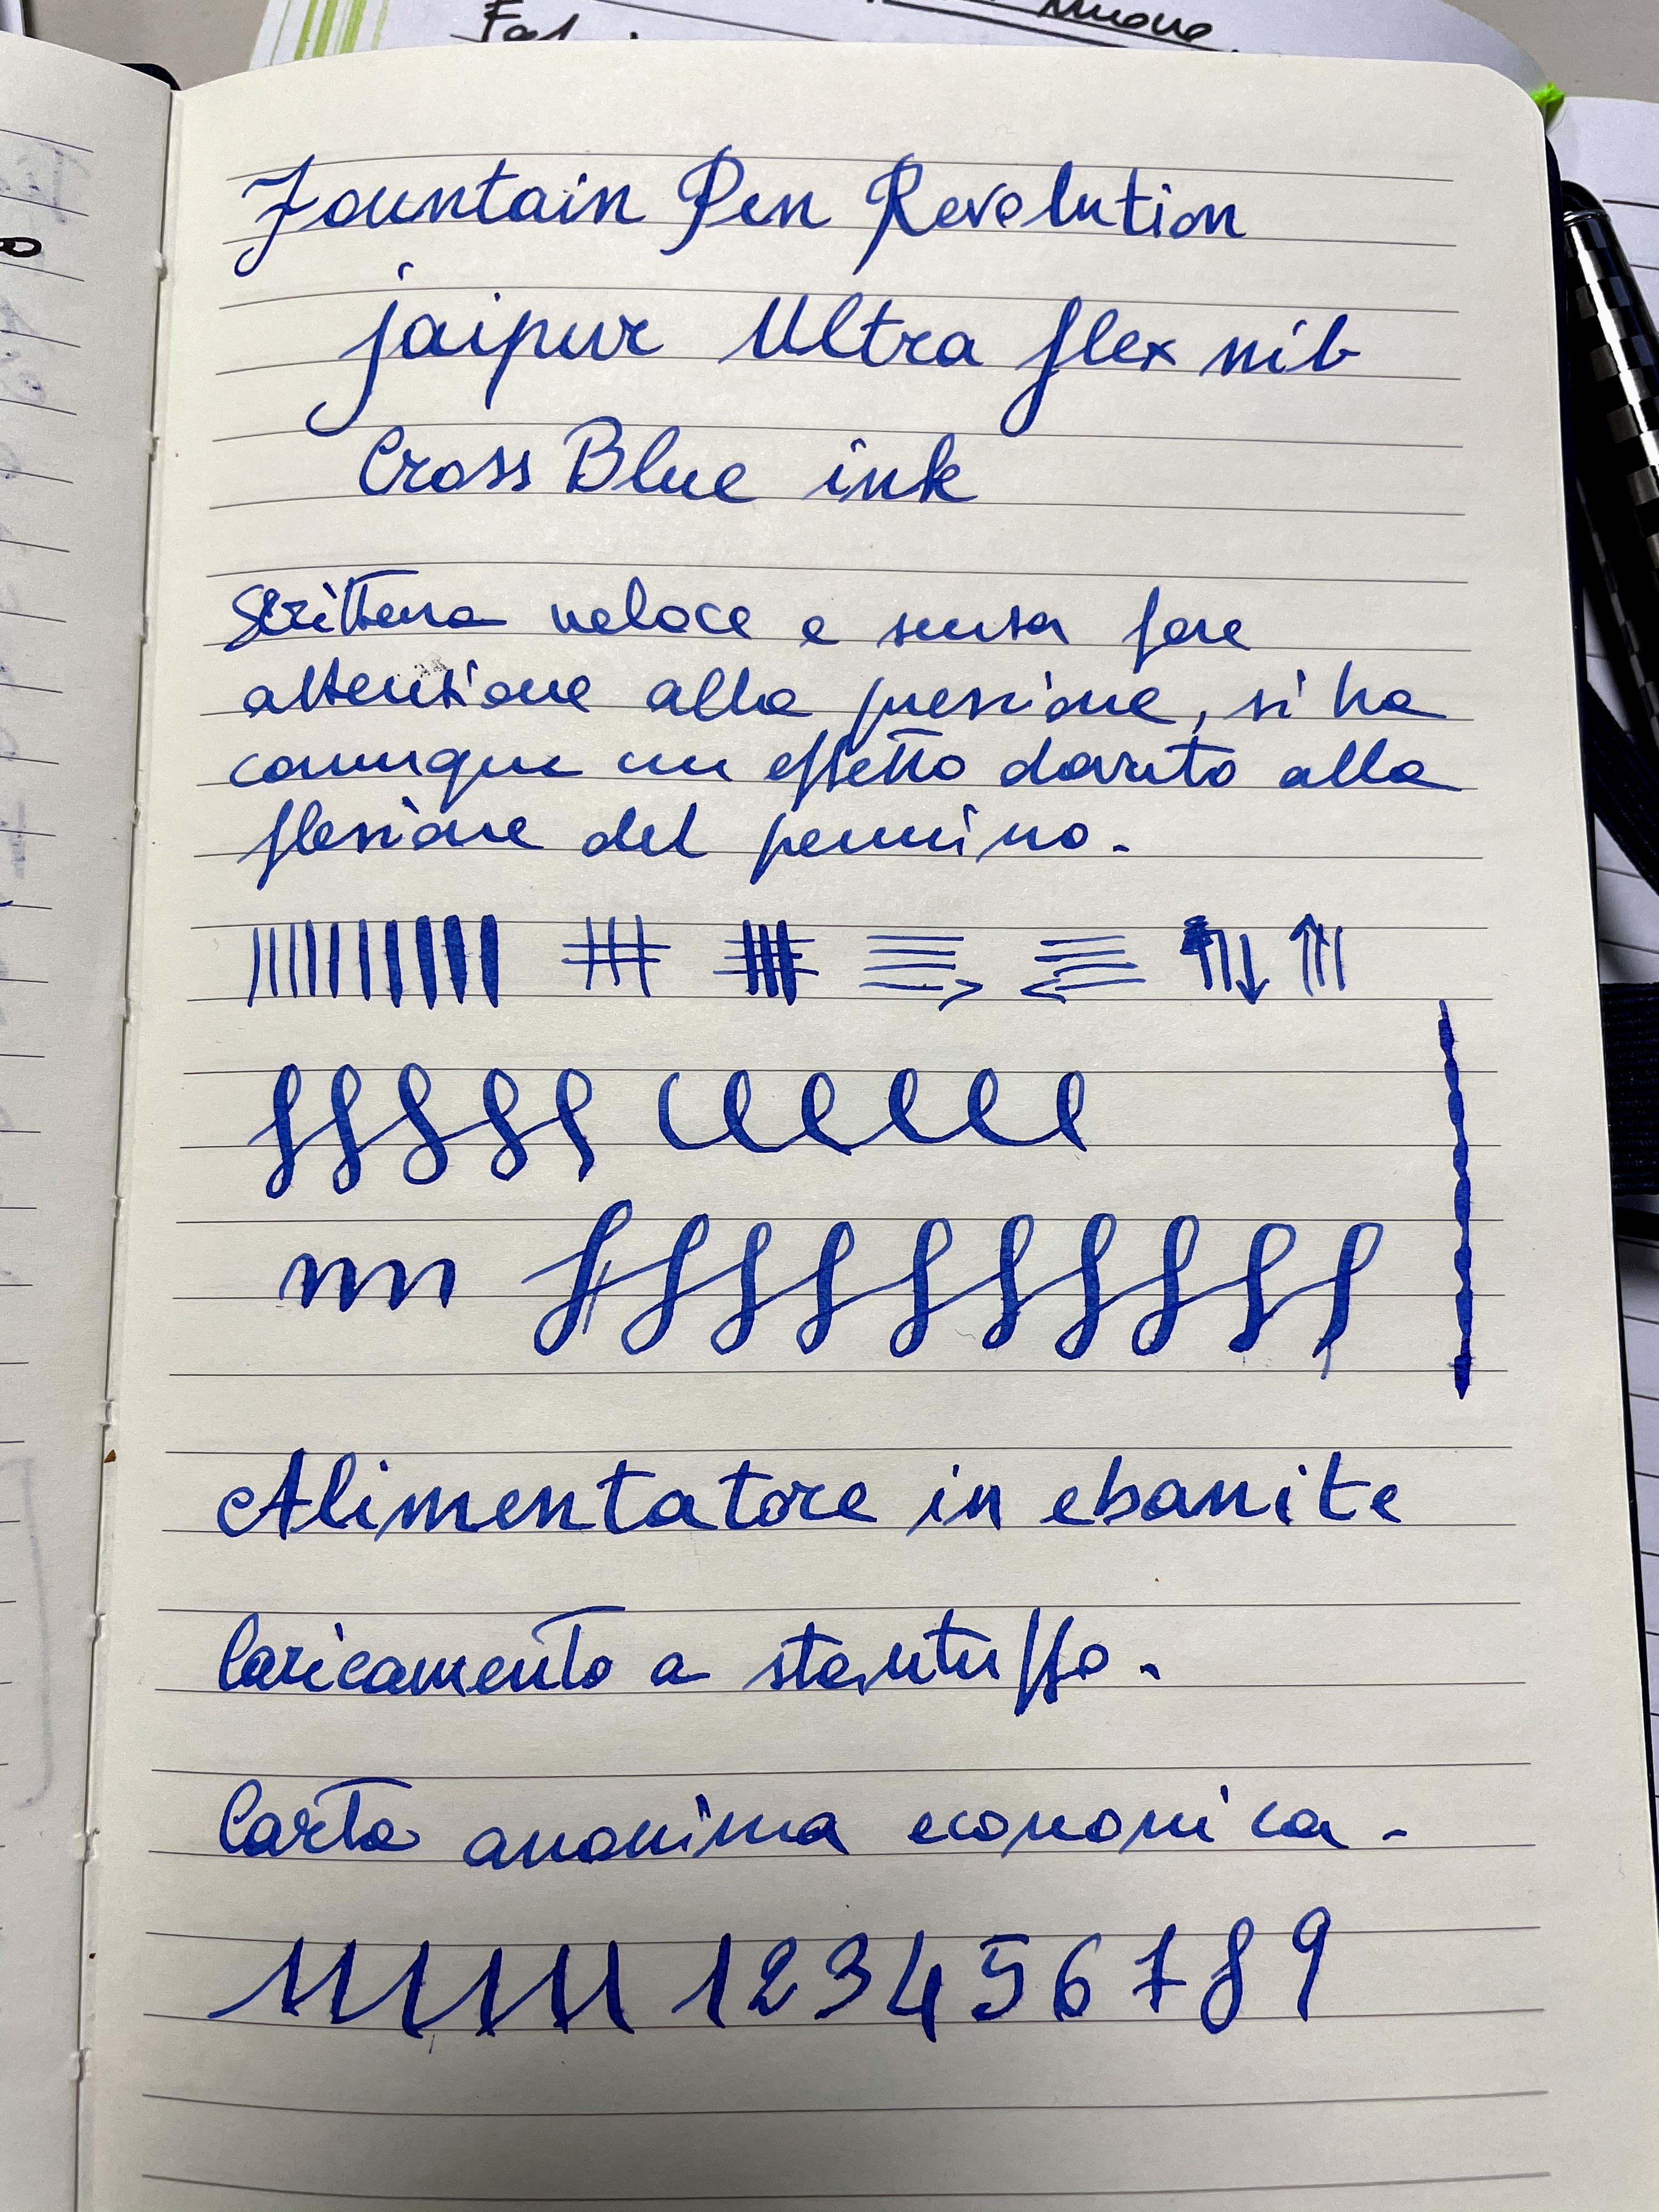 Fountain Pen Revolution
jaipur Ultra flex nib
Cross Blue ink
Scrittura veloce e senza fare
attenzione alla pressione, si ha
comunque un effetto dovuto alla
flessione del pennino.
Alimentatore in ebanite
Caricamento a stantuffo.
Carta anonima economica.
1 2 3 4 5 6 7 8 9